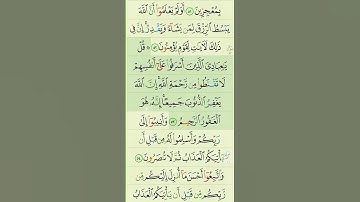 بِمُعْجِزِينَ ٥١ أَوَلَمْ يَعْلَمُوٓا۟ أَنَّ ٱللَّهَ
يَبْسُطُ ٱلرِّزْقَ لِمَن يَشَآءُ وَيَقْدِرُ إِنَّ فِى
ذَٰلِكَ لَءَايَٰتٍ لِّقَوْمٍ يُؤْمِنُونَ ٥٢ قُلْ
يَٰعِبَادِىَ ٱلَّذِينَ أَسْرَفُوا۟ عَلَىٰٓ أَنفُسِهِمْ
لَا تَقْنَطُوا۟ مِن رَّحْمَةِ ٱللَّهِ إِنَّ ٱللَّهَ
يَغْفِرُ ٱلذُّنُوبَ جَمِيعًا إِنَّهُۥ هُوَ
ٱلْغَفُورُ ٱلرَّحِيمُ ٥٣ وَأَنِيبُوٓا۟ إِلَىٰ
رَبِّكُمْ وَأَسْلِمُوا۟ لَهُۥ مِن قَبْلِ أَن
يَأْتِيَكُمُ ٱلْعَذَابُ ثُمَّ لَا تُنصَرُونَ ٥٤
وَٱتَّبِعُوٓا۟ أَحْسَنَ مَآ أُنزِلَ إِلَيْكُم مِّن
رَّبِّكُم مِّن قَبْلِ أَن يَأْتِيَكُمُ ٱلْعَذَابُ